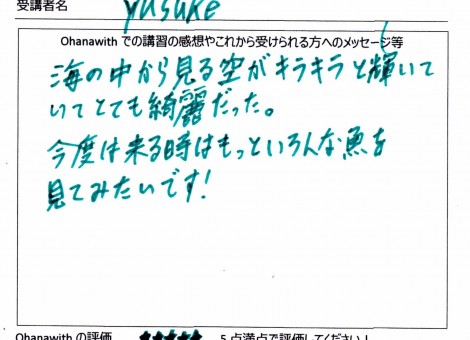 受講者名 yusuke
Ohanawith での講習の感想やこれから受けられる方へのメッセージ等
海の中から見る空がキラキラと輝いて
いてとても綺麗だった。
今度は来る時はもっといろんな魚を
見てみたいです!
Ohanawith の評価 ★★★★★ 5点満点で評価してください!